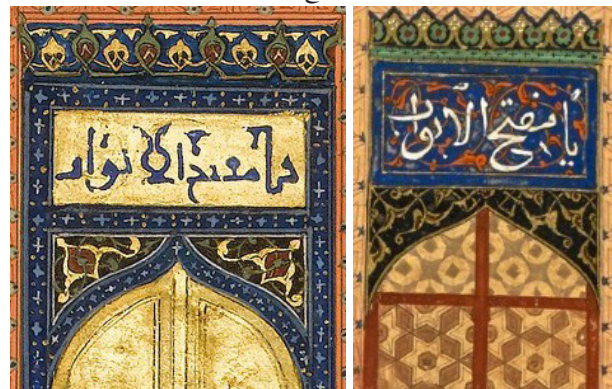 يا مفتح الابواب
يا مفتح الابواب